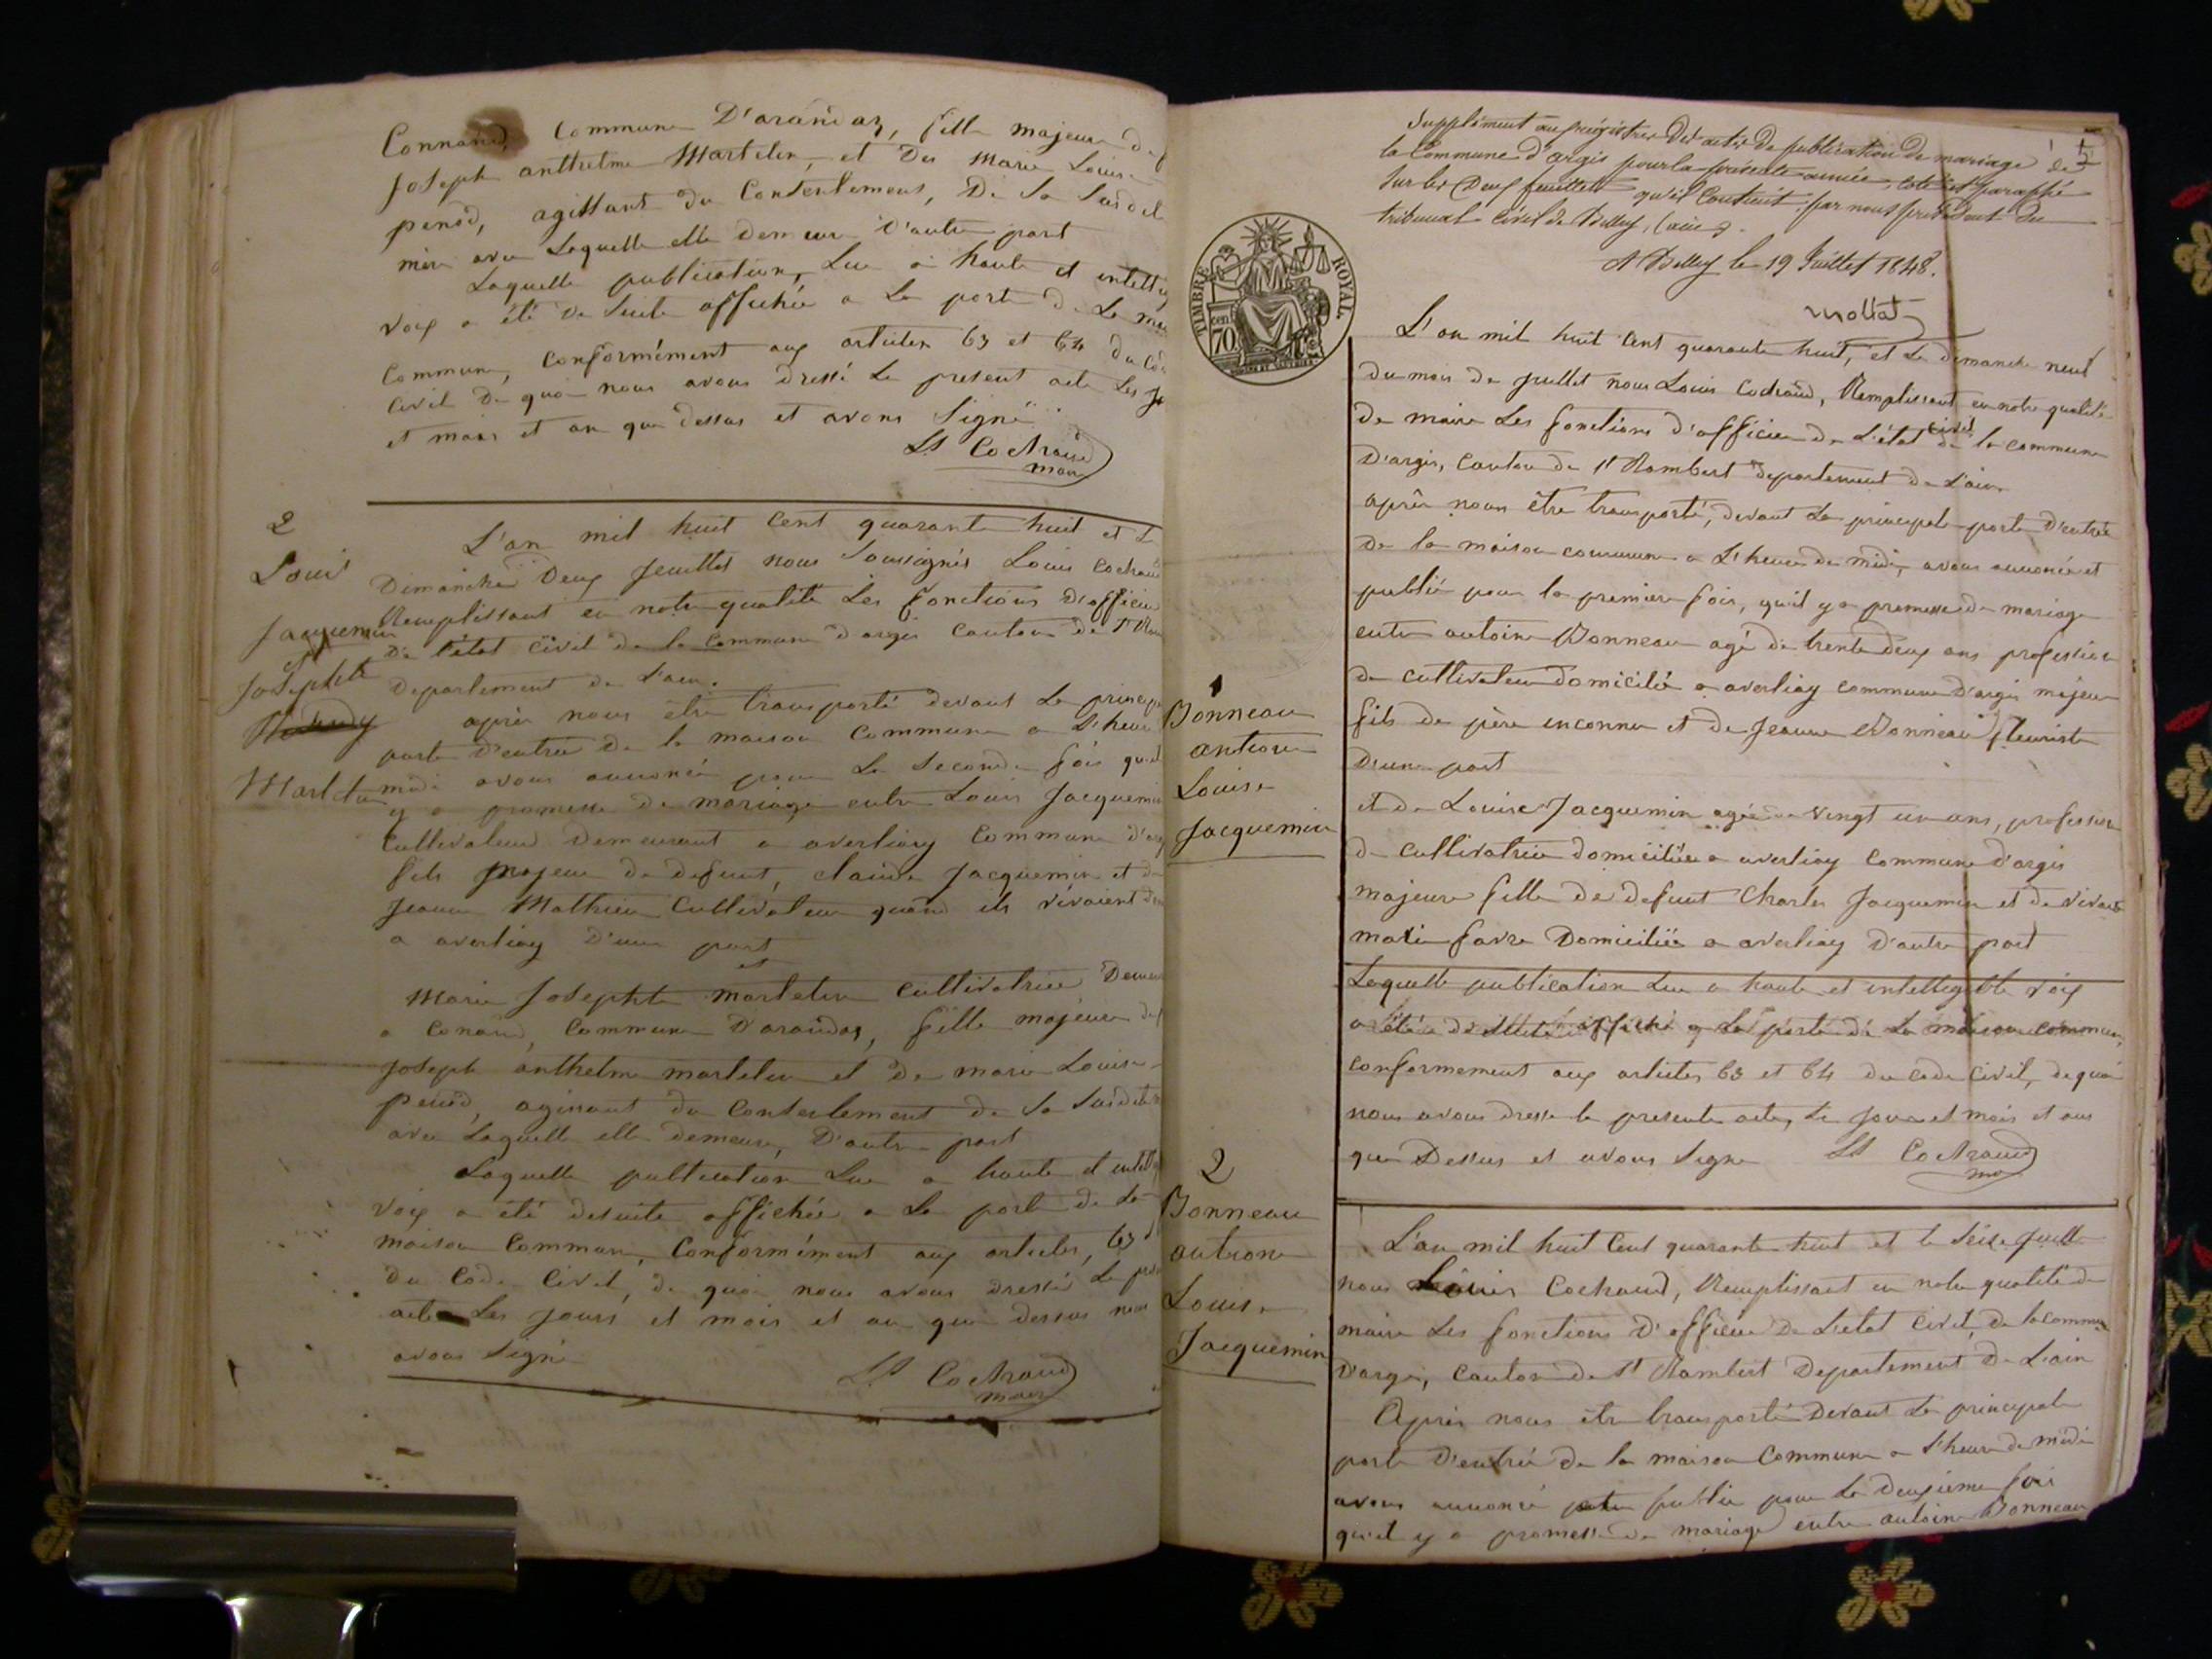 Connand, Commune D'arandaz, fille majeure de
Joseph anthelme Martelin, et De Marie Louise
penod, agissant du Consentement, De Sa Susdite
mère avec Laquelle elle demeure D'autre part
Laquelle publication, Lue a haute et intellig
voix a été de Suite affichée a La porte de La
Commune, Conformément aux articles 63 et 64 du Co
Civil De quoi nous avons dressé Le present acte Les
et mois et an que dessus et avons Signé
Ls Cochraud
maire
2
Louis
Jacquemin
et
Josephte
Martelin
L'an mil huit Cent quarante huit et L
Dimanche Deux Jeuillet nous Soussignés Louis Cochraud
Remplissant en notre qualité Les fonctions D'officier
De l'état Civil de la Commune d'argis Canton de St
Departement de L'ain.
après nous être transporté devant La principa
porte D'entrée De la maison Commune a L'heure
midi avons annoncé pour La Seconde fois qu'il
y a promesse de mariage entre Louis Jacquemin
Cultivateur Demeurant a averliay Commune d'arg
fils majeur De defunt, claude Jacquemin et de
Jeanne Mathieu Cultivateur quand ils vivaient
a averliay D'une part
et
Marie Josephte martelin Cultivatrice Demeu
a Conand, Commune D'arandas, fille majeure de
Joseph anthelme martelin et De marie Louise
penod, agissant du Consentement de Sa Susdite
avec Laquelle elle demeure, D'autre part
Laquelle publication Lue a haute et intellig
voix a été desuite affichée a La porte de La
maison Commune, Conformément aux articles, 63
du Code Civil, de quoi nous avons dressé Le
acte Les jours et mois et an que dessus nous
avons Signé
Ls Cochraud
maire
5
Supplément au registre Des actes De publication de mariage de
la Commune d'argis pour la présente année, coté et paraphé
Sur les Deux feuillets qu'il Contient par nous président du
tribunal Civil de Belley, (ain).
A Belley le 19 Juillet 1848.
Mollat
TIMBRE ROYAL
70 cen
L'an mil huit Cent quarante huit, et Le dimanche neuf
du mois de Juillet nous Louis Cochraud, Remplissant en notre qualité
de maire Les fonctions d'officier de L'état civil de la commune
D'argis, Canton de St Rambert departement de L'ain
après nous être transporté, devant La principale porte D'entrée
de la maison commune a L'heure de midi, avons annoncé et
publié pour la premiere fois, qu'il y a promesse de mariage
entre antoine Bonneau agé de trente deux ans profession
de cultivateur domicilié a averliay commune d'argis majeur
fils de père inconnu et de Jeanne Bonneau fleuriste
D'une part
et de Louise Jacquemin agée de vingt un ans, profession
de cultivatrice domiciliée a averliay Commune d'argis
majeure fille de defunt Charles Jacquemin et de vivante
marie favre Domiciliée a averliay D'autre part
Laquelle publication Lue a haute et intellegible voix
a été de Suite affiché a La porte de La maison commune,
conformement aux articles 63 et 64 du code civil, de quoi
nous avons dressé le presente acte, Le Jour et mois et ans
que Dessus et avons Signe Ls Cochraud
1
Bonneau
antione
Louise
Jacquemin
2
Bonneau
antione
Louise
Jacquemin
L'an mil huit Cent quarante huit et le Seize Juillet
nous Louis Cochraud, Remplissant en notre qualité de
maire Les fonctions D'officier De L'etat Civil De la commune
D'argis, Canton de St Rambert Departement De L'ain
Après nous être transporté Devant La principale
porte D'entrée De la maison Commune a L'heure de midi
avons annoncé publié pour La deuxième fois
qu'il y a promesse de mariage entre antoine Bonneau